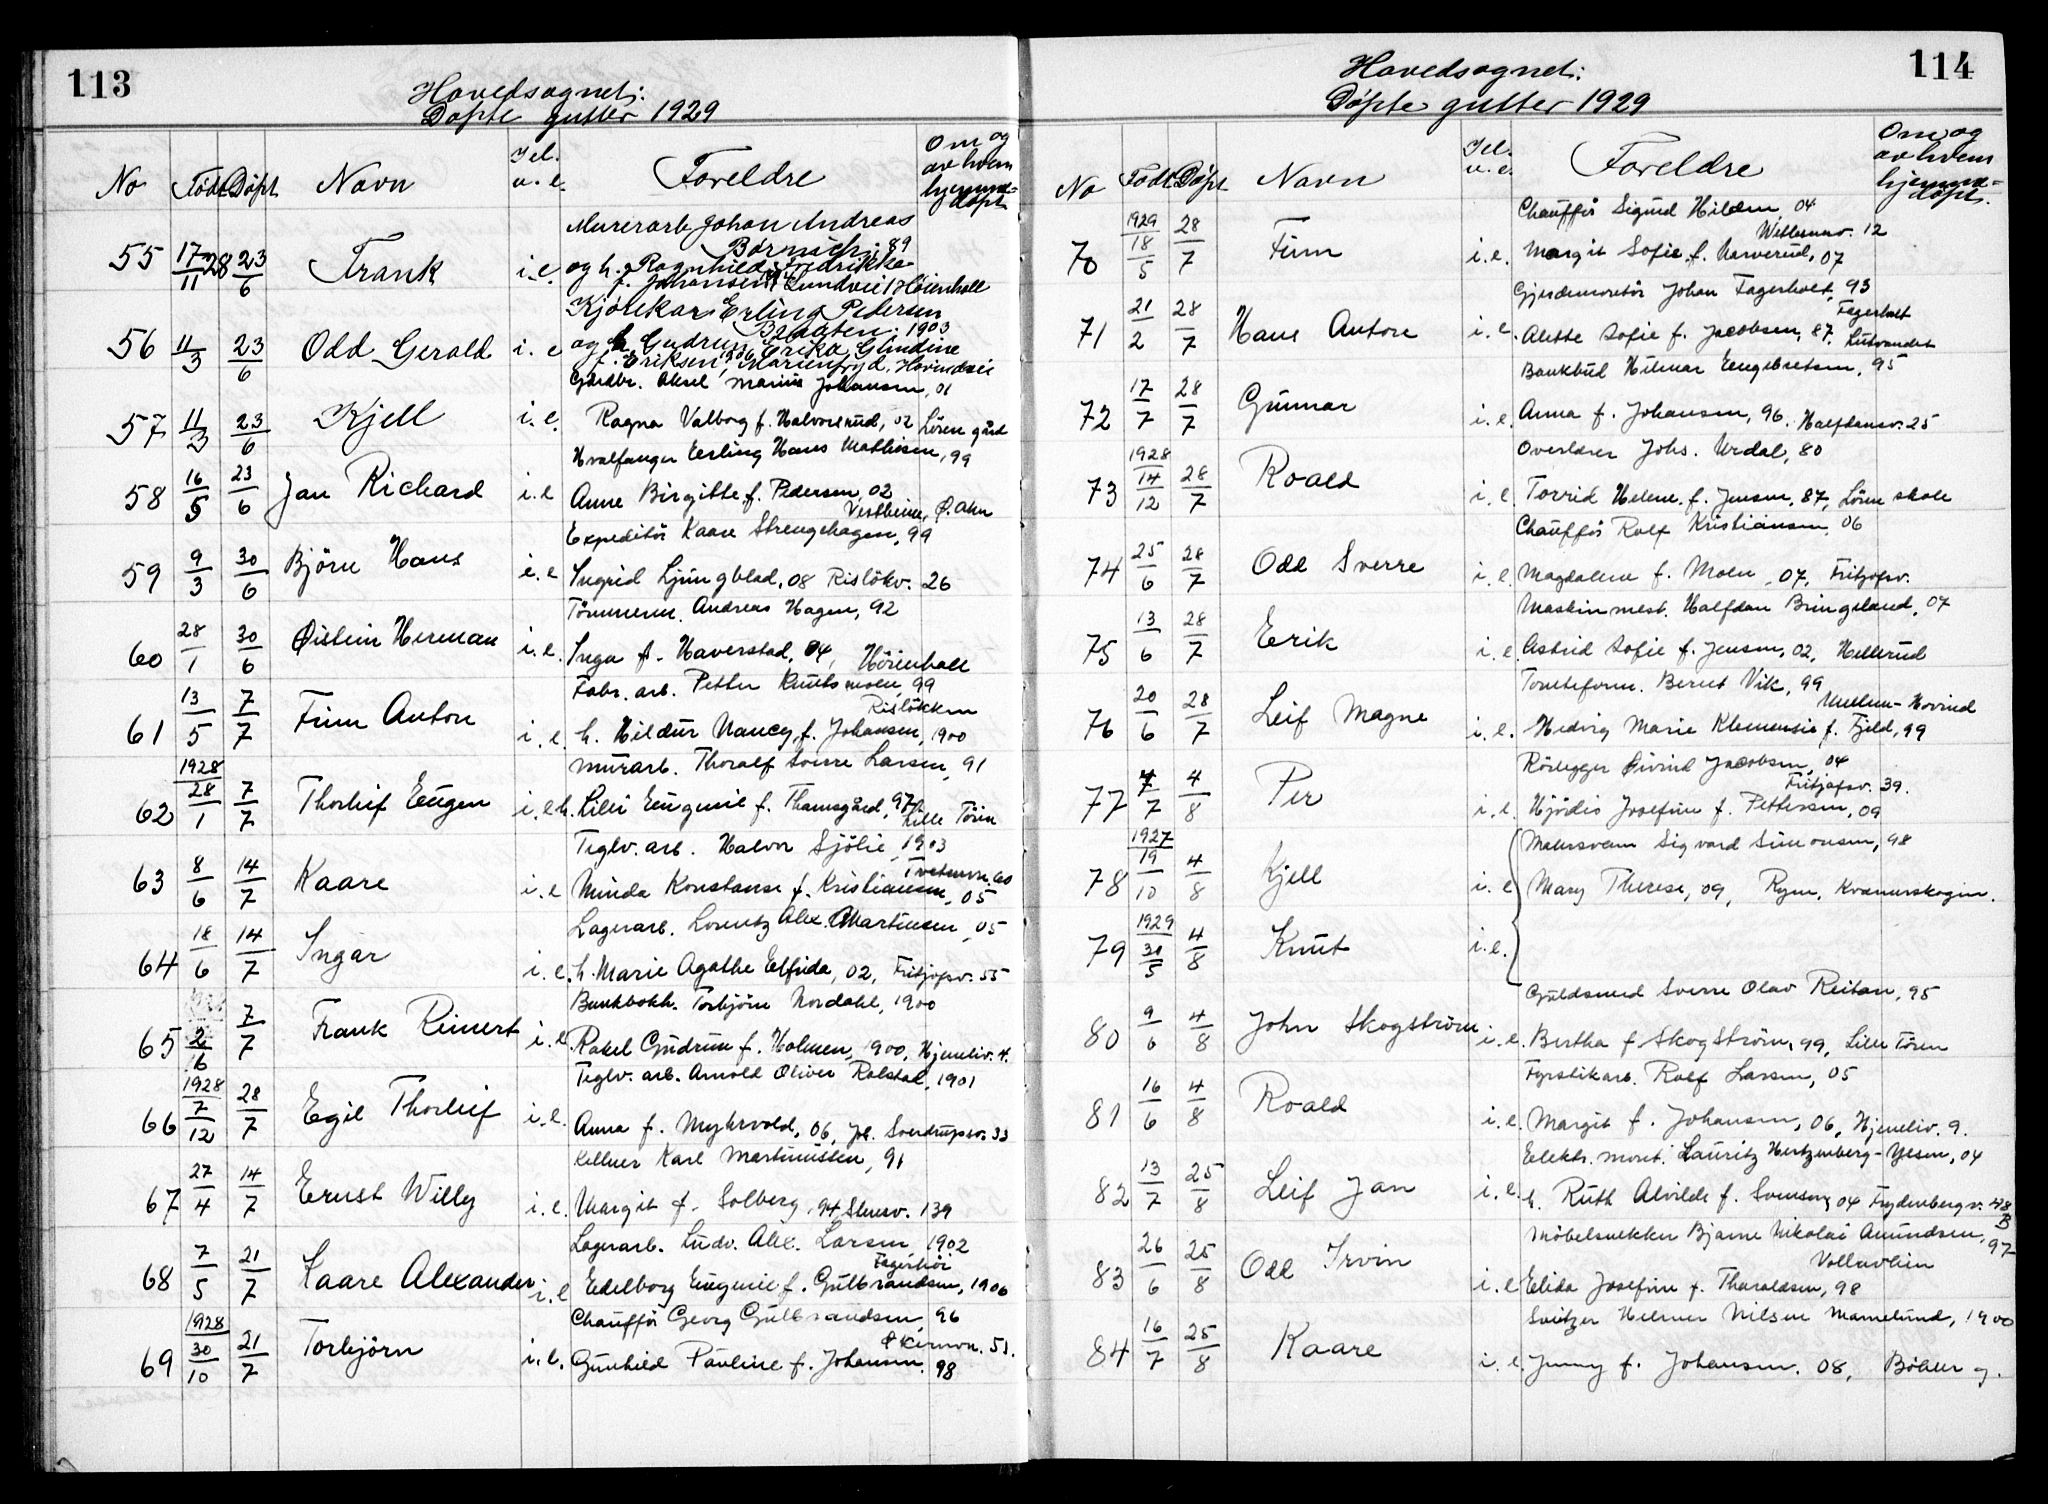 113
Hovedsognet:
Døpte gutter 1929
No Født Døpt Navn I el. u.e. Foreldre Om og av hvem hjemmedøpt
Murerarb Johan Andreas
55 17/11 28 23/6 Frank i.e. 89
og h. Ragnhild Fredrikke
f. Johansen Lundvei 1 Høienhall
Kjørekar Erling Pedersen
Braaten, 1903
56 11/3 23/6 Odd Gerald i. e og h Gudrun Erika Glindine
f. Eriksen, 1906 Marienfryd, Hovindvei
Gårdbr. Aksel Marius Johansen, 01
57 11/3 23/6 Kjell i. e. Ragna Valborg f. Halvorsrud, 02 Lören gård
Hvalfanger Erling Hans Mathisen, 99
58 16/5 23/6 Jan Richard i. e Anne Birgitte f. Pedersen, 02
Vestheim, Ø. Aker
Expeditör Kaare Strengehagen, 99
59 9/3 30/6 Björn Hans i. e Ingrid Ljungblad, 08 Rislökv. 26
Tömmerm. Andreas Hagen, 92
60 28/1 30/6 Øistein Herman i. e. Inga f. Haverstad, 04, Höienhall
Fabr. arb. Petter Knutsmoen, 99
Rislökken
61 13/5 7/7 Finn Anton i. e. h. Hildur Nancy f. Johansen, 1900
Murarb. Thoralf Sverre Larsen, 91
62 1928 28/1 7/7 Thorleif Eugen i. e. h. Lilli Eugenie f. Thamsgård, 97
Lille Töien
Teglv. arb. Halvor Sjölie, 1903
Tvetenvn. 60
63 8/6 14/7 Kaare i. e Minda Konstanse f. Kristiansen, 05
Lagerarb. Lorentz Alex. Martinsen, 05
64 18/6 14/7 Ingar i. e. h. Marie Agathe Elfrida, 02, Fritjofsv. 55
Bankbokh. Torbjörn Nordahl, 1900
65 2/6 7/7 Frank Reinert i. e. Rakel Gudrun f. Holmen, 1900, Hjemliv. 4.
Teglv. arb. Arnold Oliver Rolstad, 1901
66 1928 7/12 28/7 Egil Thorleif i. e. Anna f. Myhrvold, 06, Joh. Sverdrupsv. 33
Kellner Karl Martinussen, 91
67 27/4 14/7 Ernst Willy i. e. Margit f. Solberg, 94, Stensv. 139
Lagerarb. Ludv. Alex. Larsen, 1902
Fagerliei
68 7/5 21/7 Kaare Alexander i. e Edelborg Eugenie f. Gulbrandsen, 1906
Chaufför Georg Gulbrandsen, 96
69 1928 30/10 21/7 Torbjörn i. e. Gunhild Pauline f. Johansen, 98
114
Hovedsognet:
Døpte gutter 1929
No Født Døpt Navn I el. u.e. Foreldre Om og av hvem hjemmedøpt.
Chaufför Sigurd Hilden, 04
70 1929 18/5 28/7 Finn i. e. Margit Sofie f. Narverud, 07
Gjerdemontör Johan Fagerholt, 93
Fagerholt
71 21/2 28/7 Hans Anton i. e. Alette Sofie f. Jacobsen, 87, Lutvandet
Bankbud Hilmar Engebretsen, 95
72 17/7 28/7 Gunnar i. e. Anna f. Johansen, 96. Halfdansv. 25
Overlærer Johs. Urdal, 80
73 1928 14/12 28/7 Roald i. e. Torrid Helene f. Jensen, 87, Lören skole
Chaufför Rolf Kristiansen, 06
74 25/6 28/7 Odd Sverre i. e. Magdalena f. Moen, 07, Fritjofsv.
Maskinmest. Halfdan Bringeland, 07
75 13/6 28/7 Erik i. e. Astrid Sofie f. Jensen, 02, Hellerud
Tomteform. Bernt Vik, 99
76 20/6 28/7 Leif Magne i. e. Hedvig Marie Klemensie f. Fjeld, 99
Rörlegger Eivind Jacobsen, 04
Fritjofsv. 39.
77 4/7 4/8 Per i. e. Hjördis Josefine f. Pettersen, 09
Malersvenn Sigvard Simonsen, 98
78 1927 19/10 4/8 Kjell i. e Mary Therese, 09, Ryen, Kvernerskogen.
79 1929 30/5 4/8 Knut i. e.
Guldsmed Sverre Olav Reitan, 95
80 9/6 4/8 John Skogström i. e. Bertha f Skogström, 99, Lille Töien
Fyrstikarb. Rolf Larsen, 05
81 16/6 4/8 Roald i. e. Margit f. Johansen, 06, Hjemliv. 9.
Elektr. mont. Lauritz Hertzenberg-Ylsen, 04
82 13/7 25/8 Leif Jan i. e. h. Ruth Alvilde f. Svensen, 04 Frydenbergv. 48 B
Möbelsnekker Bjarne Nikolai Amundsen, 97
Vollavlien
83 26/6 25/8 Odd Irvin i. e Elida Josefine f. Tharaldsen, 98
Snitzer Helmer Nilsen Mamelund, 1900
84 16/7 25/8 Kaare i. e. Jenny f. Johansen, 08, Böhler g.